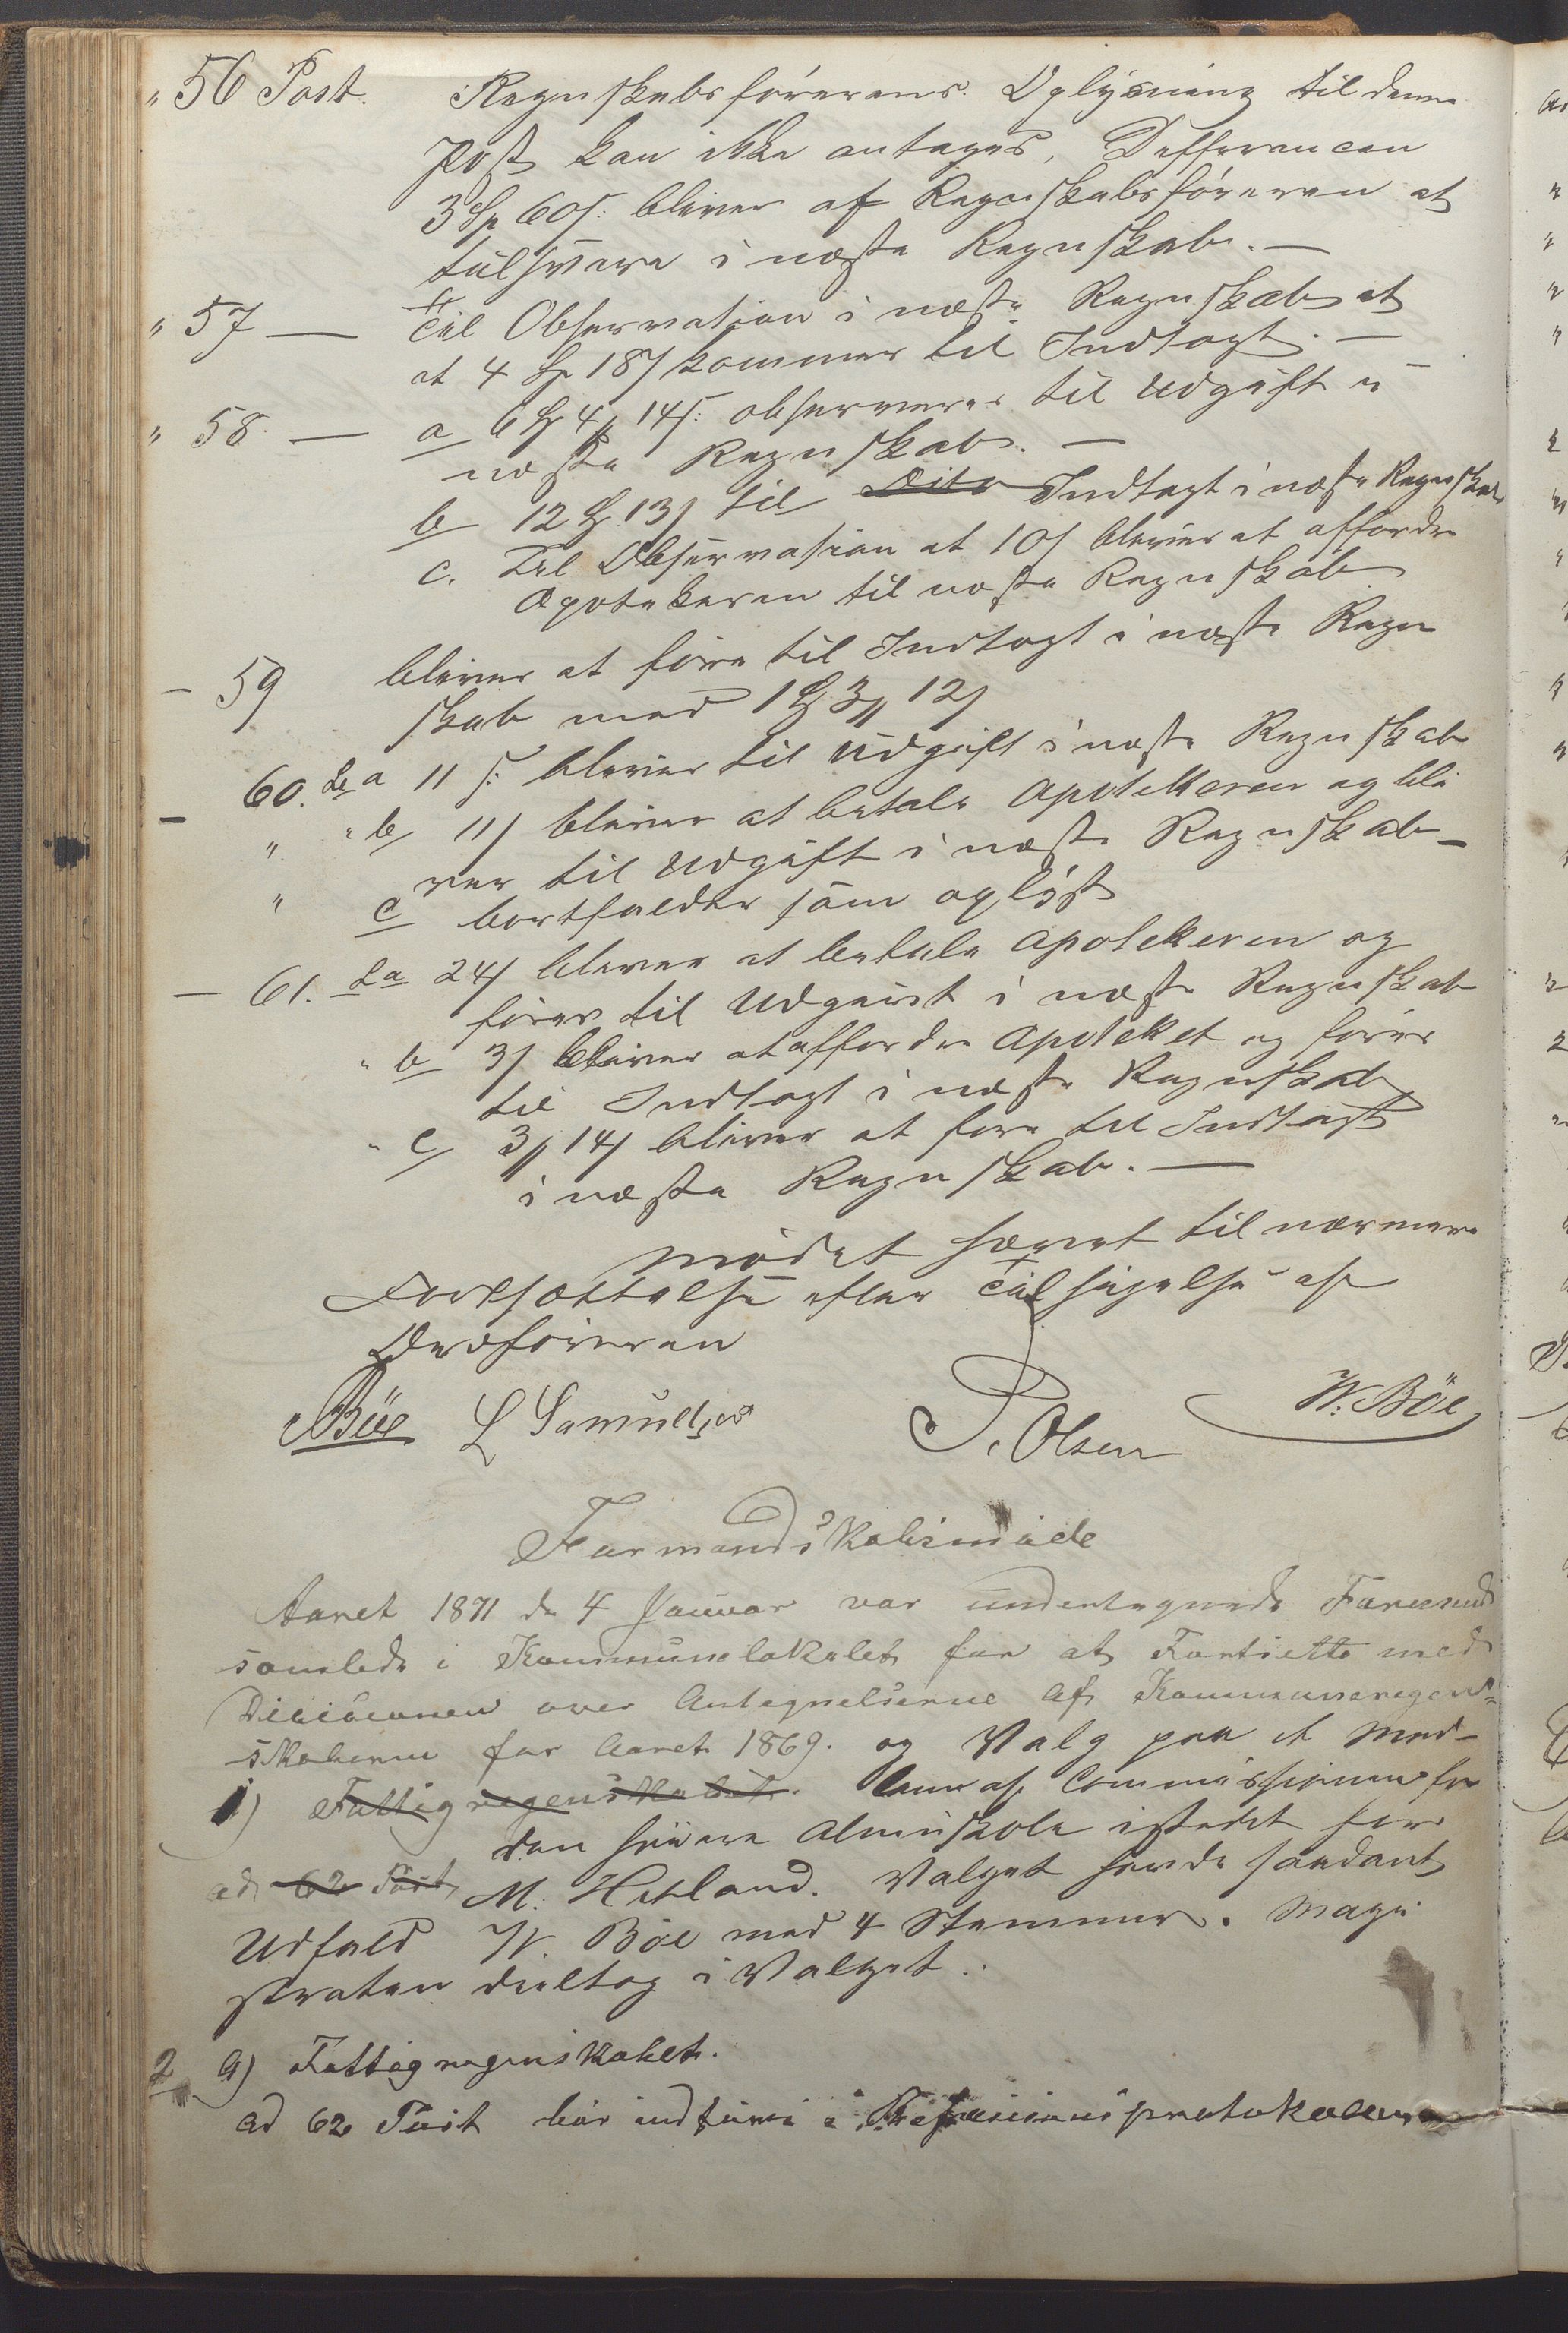 " 56 Post. Regnskabsførerens Oplysning til denne
Post kan ikke antages, Defferencen
3 Sp 60 s: bliver af Regnskabsføreren at
tilsvare i næste Regnskab. —
" 57 — Til Observation i næste Regnskab at
at 4 Sp 18 s kommer til Indtægt. —
" 58. — a 6 Sp 4 # 14 s: observeres til Udgift i
næste Regnskab. —
b 12 Sp 13 s til Dito Indtægt i næste Regnskab
c. Til Observasion at 10 s bliver at affordre
Apotekeren til næste Regnskab
— 59 bliver at føre til Indtægt i næste Regn
skab med 1 Sp 3 # 12 s
— 60. La a 11 s: bliver til Udgift i næste Regnskab
" " b 11 s bliver at betale Apothekeren og bli
ver til Udgift i næste Regnskab —
" c bortfalder som oplyst
— 61. La 24 s bliver at betale Apotekeren og
føres til Udgivt i næste Regnskab
" b 3 s bliver at affordre Apoteket og føres
til Indtægt i næste Regnskab
" c 3 # 14 s bliver at føre til Indtægt
i næste Regnskab. —
Mødet hævet til nærmere
Fortsættelse efter Tilsigelse af
Ordføreren
Bøe L Samuelsen P. Olsen W. Böe
Formandskabsmøde
Aaret 1871 d. 4 Januar var undertegnede Formænd
samlede i Kommunelokalet for at Fortsætte med
Decisionen over Antegnelserne af Kommuneregen-
skaberne for Aaret 1869. og Valg paa et Med-
1) Fattigregenskabet. lem af Commissionen for
den høiere Almuskole istedet for
ad 62 Post M. Hetland. Valget havde saadant
Udfald W. Böe med 4 Stemmer. Magi
straten deeltog i Valget.
2 a) Fattigregenskabet.
ad 62 Post bør indføres i Revisionsprotokollen